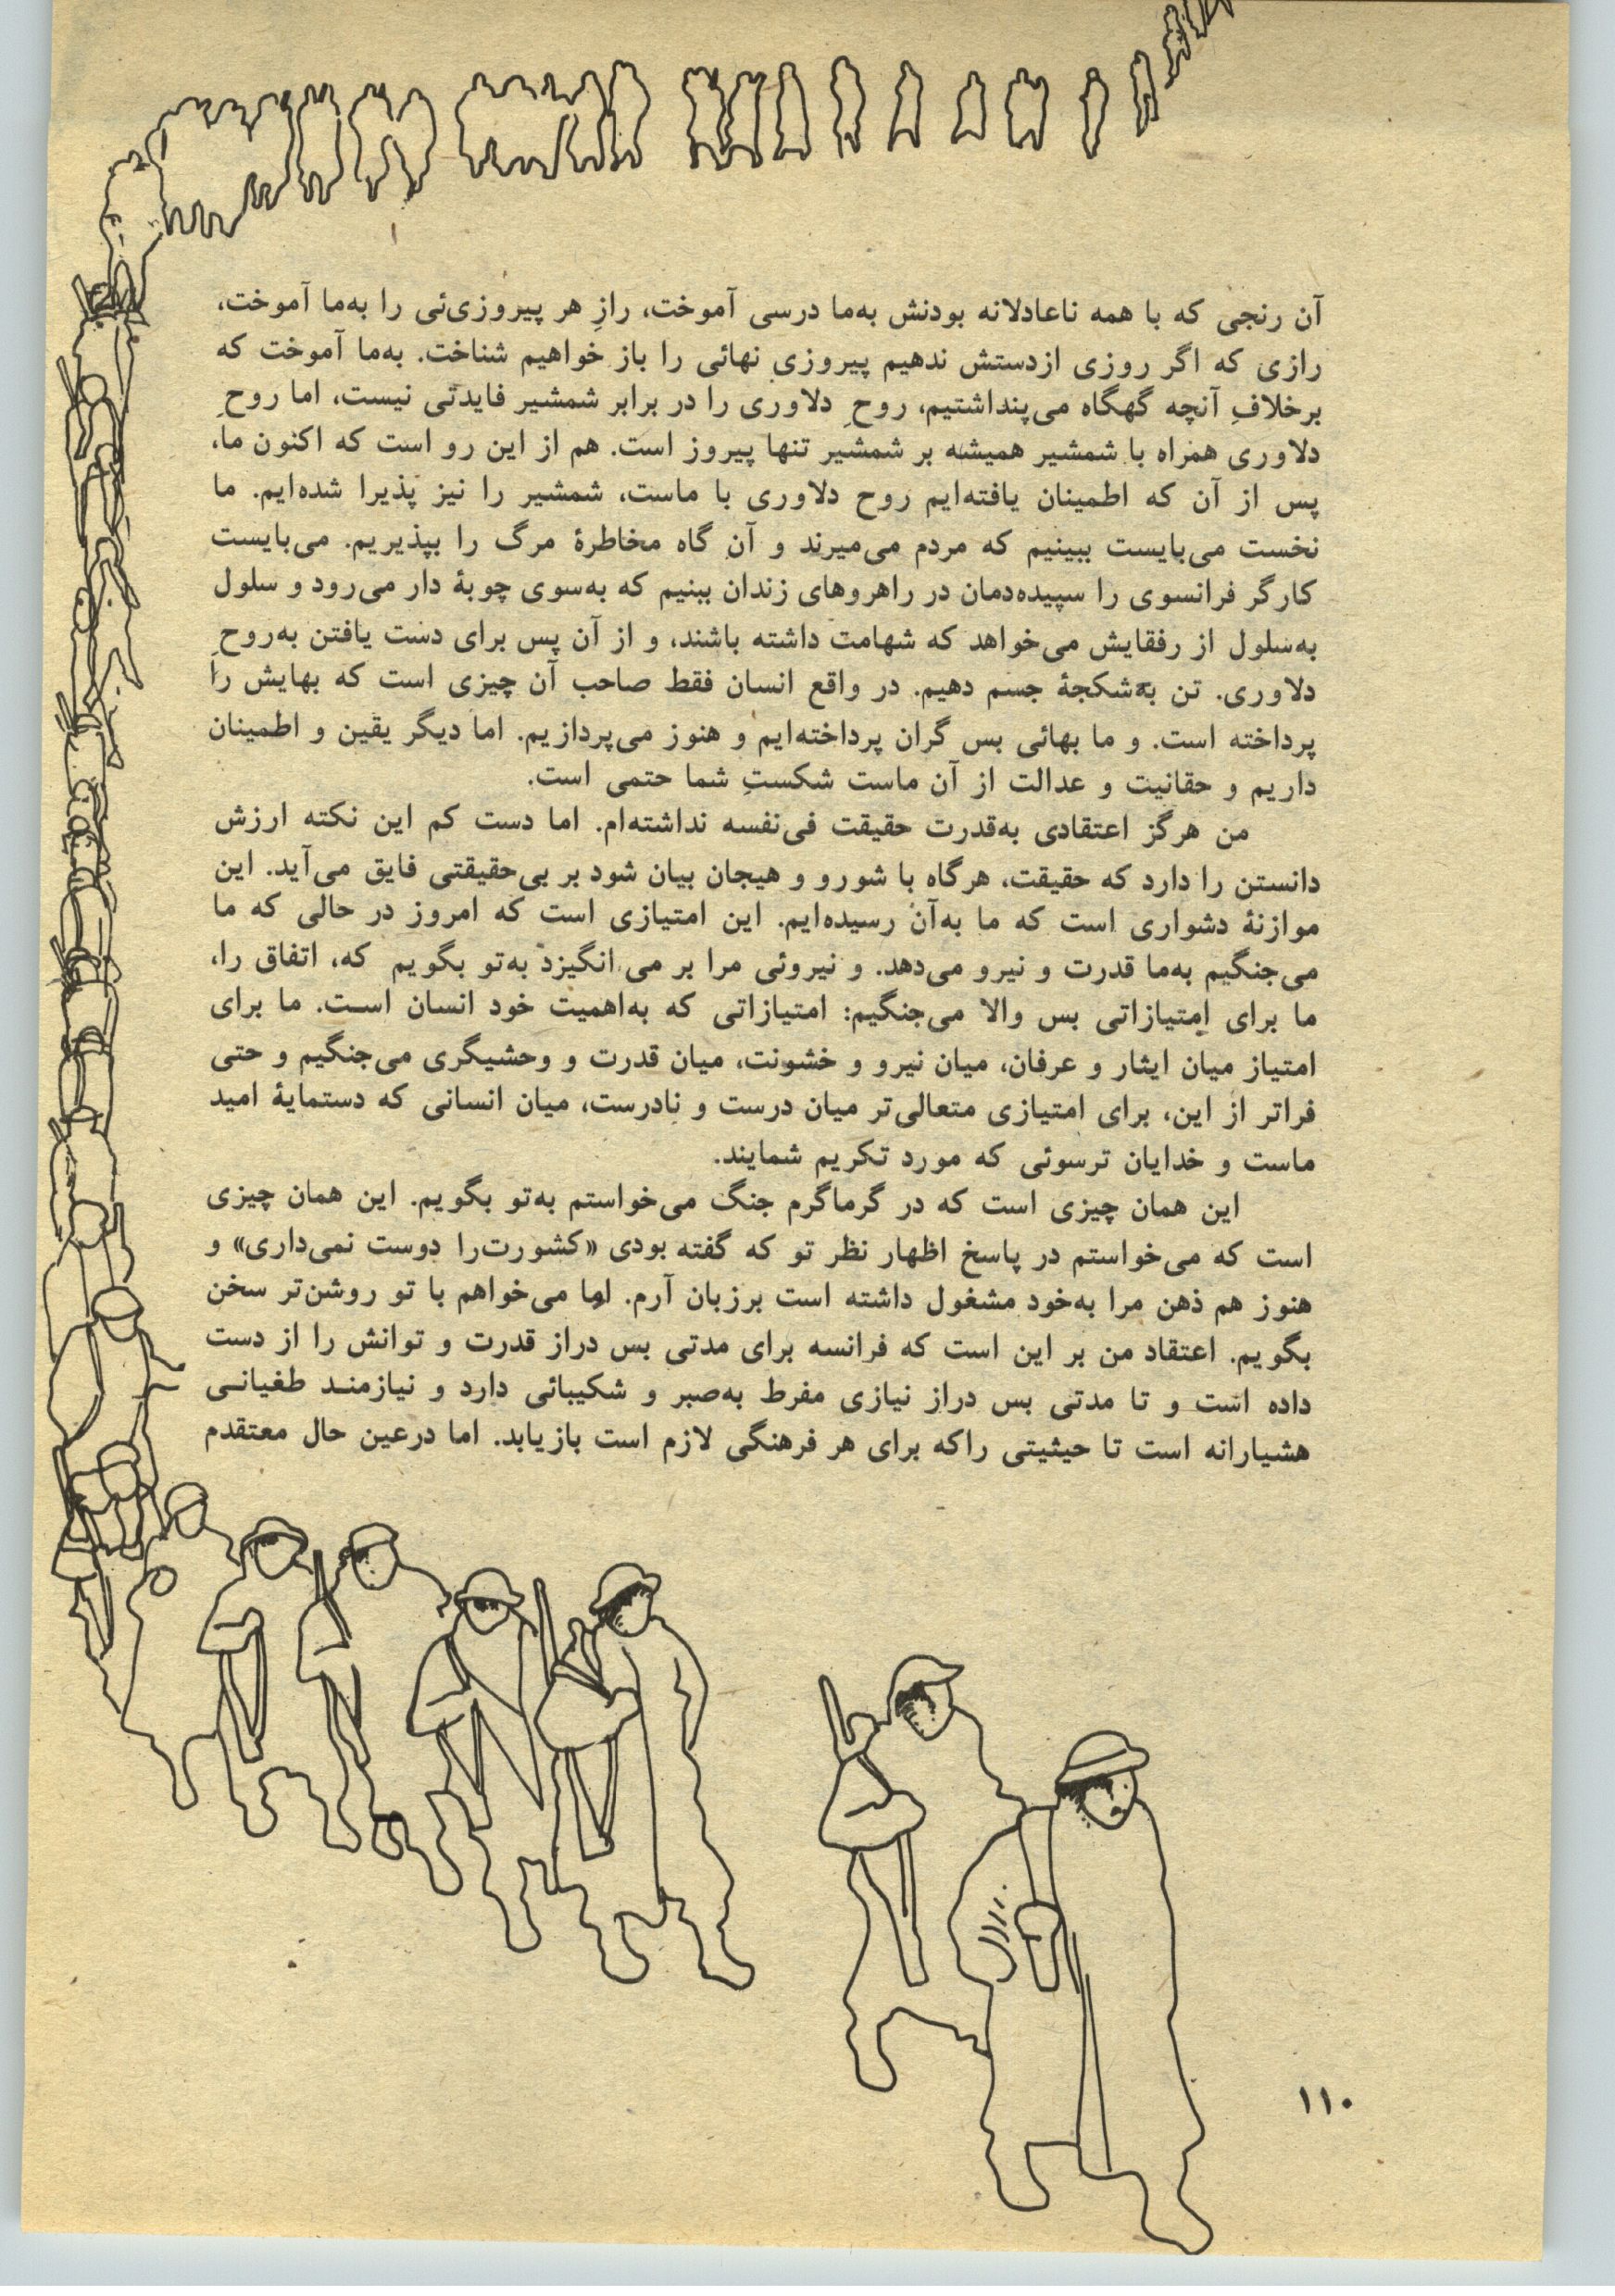 آن رنجی که با همه ناعادلانه بودنش به‌ما درسی آموخت، رازِ هر پیروزی‌ئی را به‌ما آموخت،
رازی که اگر روزی ازدستش ندهیم پیروزیِ نهائی را باز خواهیم شناخت. به‌ما آموخت که
برخلافِ آنچه گهگاه می‌پنداشتیم، روحِ دلاوری را در برابر شمشیر فایدتی نیست، اما روحِ
دلاوری همراه با شمشیر همیشه بر شمشیر تنها پیروز است. هم از این رو است که اکنون ما،
پس از آن که اطمینان یافته‌ایم روح دلاوری با ماست، شمشیر را نیز پذیرا شده‌ایم. ما
نخست می‌بایست ببینیم که مردم می‌میرند و آن گاه مخاطرهٔ مرگ را بپذیریم. می‌بایست
کارگر فرانسوی را سپیده‌دمان در راهروهای زندان ببنیم که به‌سوی چوبهٔ دار می‌رود و سلول
به‌سلول از رفقایش می‌خواهد که شهامت داشته باشند، و از آن پس برای دست یافتن به‌روحِ
دلاوری. تن به‌شکجهٔ جسم دهیم. در واقع انسان فقط صاحب آن چیزی است که بهایش را
پرداخته است. و ما بهائی بس گران پرداخته‌ایم و هنوز می‌پردازیم. اما دیگر یقین و اطمینان
داریم و حقانیت و عدالت از آن ماست شکستِ شما حتمی است.
من هرگز اعتقادی به‌قدرت حقیقت فی‌نفسه نداشته‌ام. اما دست کم این نکته ارزش
دانستن را دارد که حقیقت، هرگاه با شورو و هیجان بیان شود بر بی‌حقیقتی فایق می‌آید. این
موازنهٔ دشواری است که ما به‌آن رسیده‌ایم. این امتیازی است که امروز در حالی که ما
می‌جنگیم به‌ما قدرت و نیرو می‌دهد. و نیروئی مرا بر می‌انگیزد به‌تو بگویم که، اتفاق را،
ما برای امتیازاتی بس والا می‌جنگیم: امتیازاتی که به‌اهمیت خود انسان است. ما برای
امتیاز میان ایثار و عرفان، میان نیرو و خشونت، میان قدرت و وحشیگری می‌جنگیم و حتی
فراتر از این، برای امتیازی متعالی‌تر میان درست و نادرست، میان انسانی که دستمایهٔ امید
ماست و خدایان ترسوئی که مورد تکریم شمایند.
این همان چیزی است که در گرماگرم جنگ می‌خواستم به‌تو بگویم. این همان چیزی
است که می‌خواستم در پاسخ اظهار نظر تو که گفته بودی «کشورت‌را دوست نمی‌داری» و
هنوز هم ذهن مرا به‌خود مشغول داشته است برزبان آرم. اما می‌خواهم با تو روشن‌تر سخن
بگویم. اعتقاد من بر این است که فرانسه برای مدتی بس دراز قدرت و توانش را از دست
داده است و تا مدتی بس دراز نیازی مفرط به‌صبر و شکیبائی دارد و نیازمند طغیانی
هشیارانه است تا حیثیتی راکه برای هر فرهنگی لازم است بازیابد. اما درعین حال معتقدم
۱۱۰